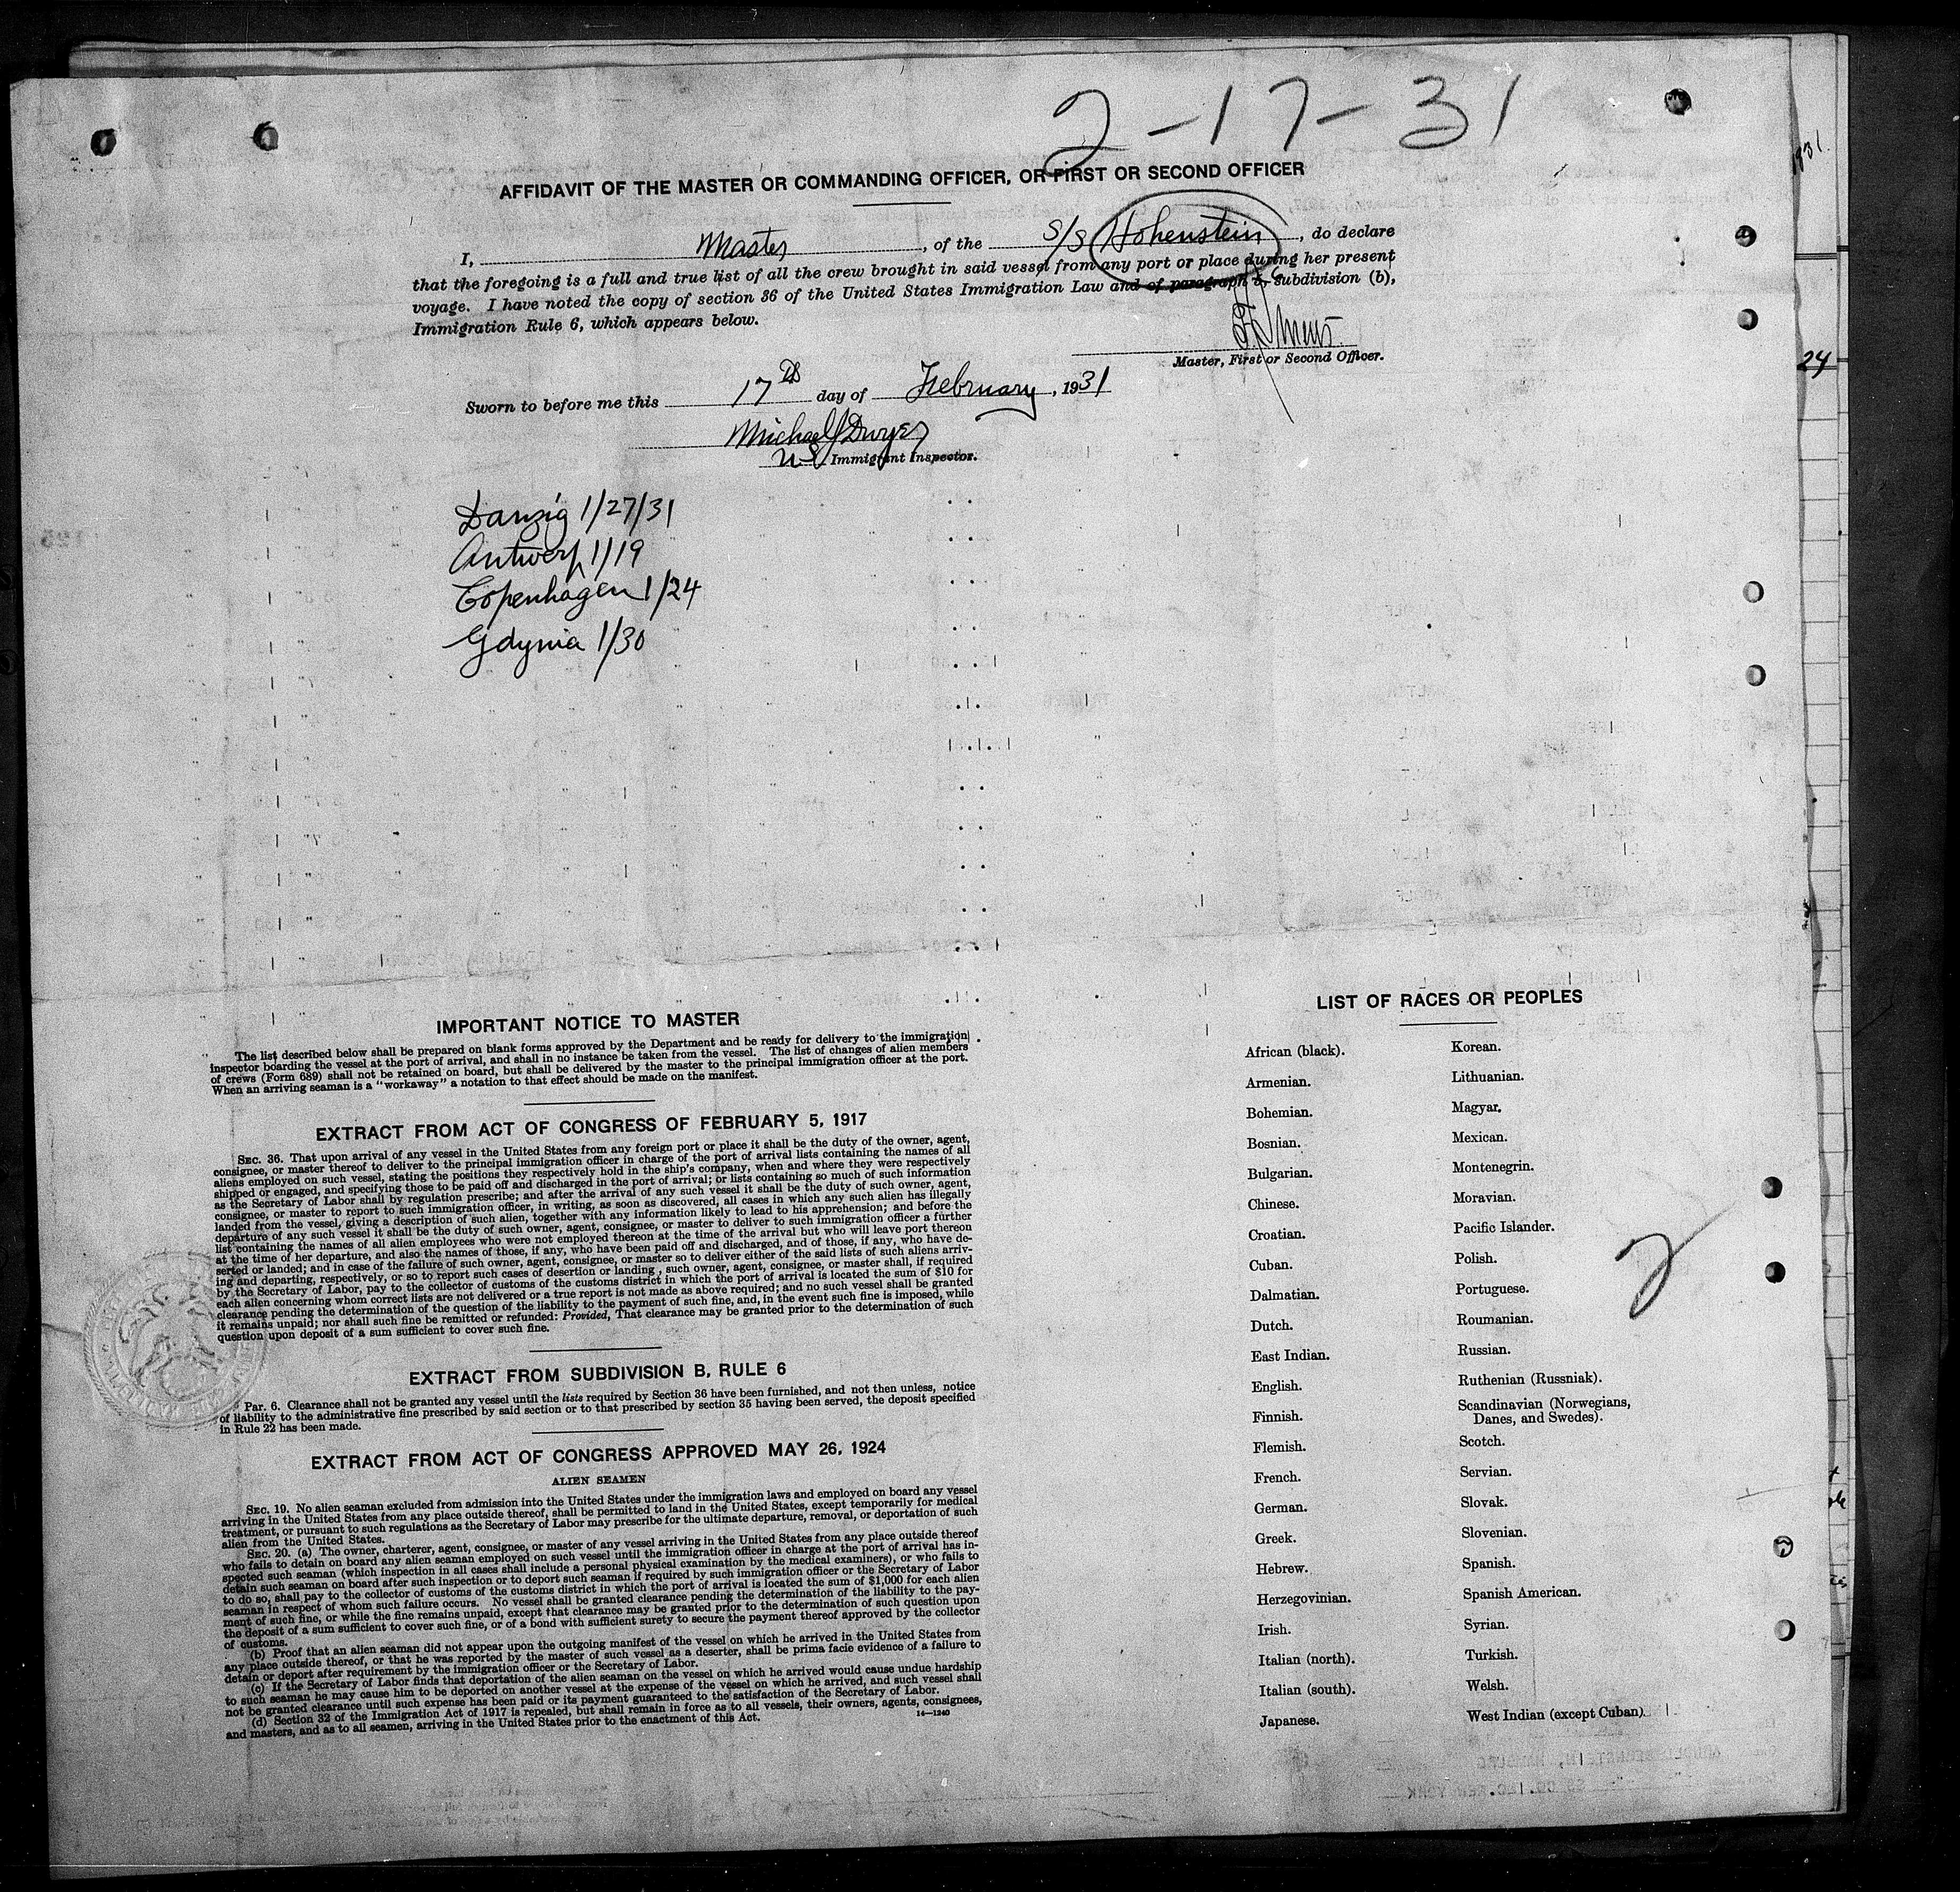 2-17-31
AFFIDAVIT OF THE MASTER OR COMMANDING OFFICER, OR FIRST OR SECOND OFFICER
I, Master, of the S/S Hohenstein, do declare
that the foregoing is a full and true list of all the crew brought in said vessel from any port or place during her present
voyage. I have noted the copy of section 36 of the United States Immigration Law and of paragraph 6, subdivision (b),
Immigration Rule 6, which appears below.
Master, First or Second Officer.
Sworn to before me this 17th day of February, 1931
Michael J Dwyer
U.S. Immigrant Inspector.
Danzig 1/27/31
Antwerp 1/19
Copenhagen 1/24
Gdynia 1/30
1931
24
IMPORTANT NOTICE TO MASTER
The list described below shall be prepared on blank forms approved by the Department and be ready for delivery to the immigration
inspector boarding the vessel at the port of arrival, and shall in no instance be taken from the vessel. The list of changes of alien members
of crews (Form 689) shall not be retained on board, but shall be delivered by the master to the principal immigration officer at the port.
When an arriving seaman is a "workaway" a notation to that effect should be made on the manifest.
EXTRACT FROM ACT OF CONGRESS OF FEBRUARY 5, 1917
SEC. 36. That upon arrival of any vessel in the United States from any foreign port or place it shall be the duty of the owner, agent,
consignee, or master thereof to deliver to the principal immigration officer in charge of the port of arrival lists containing the names of all
aliens employed on such vessel, stating the positions they respectively hold in the ship's company, when and where they were respectively
shipped or engaged, and specifying those to be paid off and discharged in the port of arrival; or lists containing so much of such information
as the Secretary of Labor shall by regulation prescribe; and after the arrival of any such vessel it shall be the duty of such owner, agent,
consignee, or master to report to such immigration officer, in writing, as soon as discovered, all cases in which any such alien has illegally
landed from the vessel, giving a description of such alien, together with any information likely to lead to his apprehension; and before the
departure of any such vessel it shall be the duty of such owner, agent, consignee, or master to deliver to such immigration officer a further
list containing the names of all alien employees who were not employed thereon at the time of the arrival but who will leave port thereon
at the time of her departure, and also the names of those, if any, who have been paid off and discharged, and of those, if any, who have de-
serted or landed; and in case of the failure of such owner, agent, consignee, or master so to deliver either of the said lists of such aliens arriv-
ing and departing, respectively, or so to report such cases of desertion or landing, such owner, agent, consignee, or master shall, if required
by the Secretary of Labor, pay to the collector of customs of the customs district in which the port of arrival is located the sum of $10 for
each alien concerning whom correct lists are not delivered or a true report is not made as above required; and no such vessel shall be granted
clearance pending the determination of the question of the liability to the payment of such fine, and, in the event such fine is imposed, while
it remains unpaid; nor shall such fine be remitted or refunded: Provided, That clearance may be granted prior to the determination of such
question upon deposit of a sum sufficient to cover such fine.
EXTRACT FROM SUBDIVISION B, RULE 6
Par. 6. Clearance shall not be granted any vessel until the lists required by Section 36 have been furnished, and not then unless, notice
of liability to the administrative fine prescribed by said section or to that prescribed by section 35 having been served, the deposit specified
in Rule 22 has been made.
EXTRACT FROM ACT OF CONGRESS APPROVED MAY 26, 1924
ALIEN SEAMEN
SEC. 19. No alien seaman excluded from admission into the United States under the immigration laws and employed on board any vessel
arriving in the United States from any place outside thereof, shall be permitted to land in the United States, except temporarily for medical
treatment, or pursuant to such regulations as the Secretary of Labor may prescribe for the ultimate departure, removal, or deportation of such
alien from the United States.
SEC. 20. (a) The owner, charterer, agent, consignee, or master of any vessel arriving in the United States from any place outside thereof
who fails to detain on board any alien seaman employed on such vessel until the immigration officer in charge at the port of arrival has in-
spected such seaman (which inspection in all cases shall include a personal physical examination by the medical examiners), or who fails to
detain such seaman on board after such inspection or to deport such seaman if required by such immigration officer or the Secretary of Labor
to do so, shall pay to the collector of customs of the customs district in which the port of arrival is located the sum of $1,000 for each alien
seaman in respect of whom such failure occurs. No vessel shall be granted clearance pending the determination of the liability to the pay-
ment of such fine, or while the fine remains unpaid, except that clearance may be granted prior to the determination of such question upon
the deposit of a sum sufficient to cover such fine, or of a bond with sufficient surety to secure the payment thereof approved by the collector
of customs.
(b) Proof that an alien seaman did not appear upon the outgoing manifest of the vessel on which he arrived in the United States from
any place outside thereof, or that he was reported by the master of such vessel as a deserter, shall be prima facie evidence of a failure to
detain or deport after requirement by the immigration officer or the Secretary of Labor.
(c) If the Secretary of Labor finds that deportation of the alien seaman on the vessel on which he arrived would cause undue hardship
to such seaman he may cause him to be deported on another vessel at the expense of the vessel on which he arrived, and such vessel shall
not be granted clearance until such expense has been paid or its payment guaranteed to the satisfaction of the Secretary of Labor.
(d) Section 32 of the Immigration Act of 1917 is repealed, but shall remain in force as to all vessels, their owners, agents, consignees,
and masters, and as to all seamen, arriving in the United States prior to the enactment of this Act.
14—1240
LIST OF RACES OR PEOPLES
African (black).
Armenian.
Bohemian.
Bosnian.
Bulgarian.
Chinese.
Croatian.
Cuban.
Dalmatian.
Dutch.
East Indian.
English.
Finnish.
Flemish.
French.
German.
Greek.
Hebrew.
Herzegovinian.
Irish.
Italian (north).
Italian (south).
Japanese.
Korean.
Lithuanian.
Magyar.
Mexican.
Montenegrin.
Moravian.
Pacific Islander.
Polish.
Portuguese.
Roumanian.
Russian.
Ruthenian (Russniak).
Scandinavian (Norwegians,
Danes, and Swedes).
Scotch.
Servian.
Slovak.
Slovenian.
Spanish.
Spanish American.
Syrian.
Turkish.
Welsh.
West Indian (except Cuban).
2